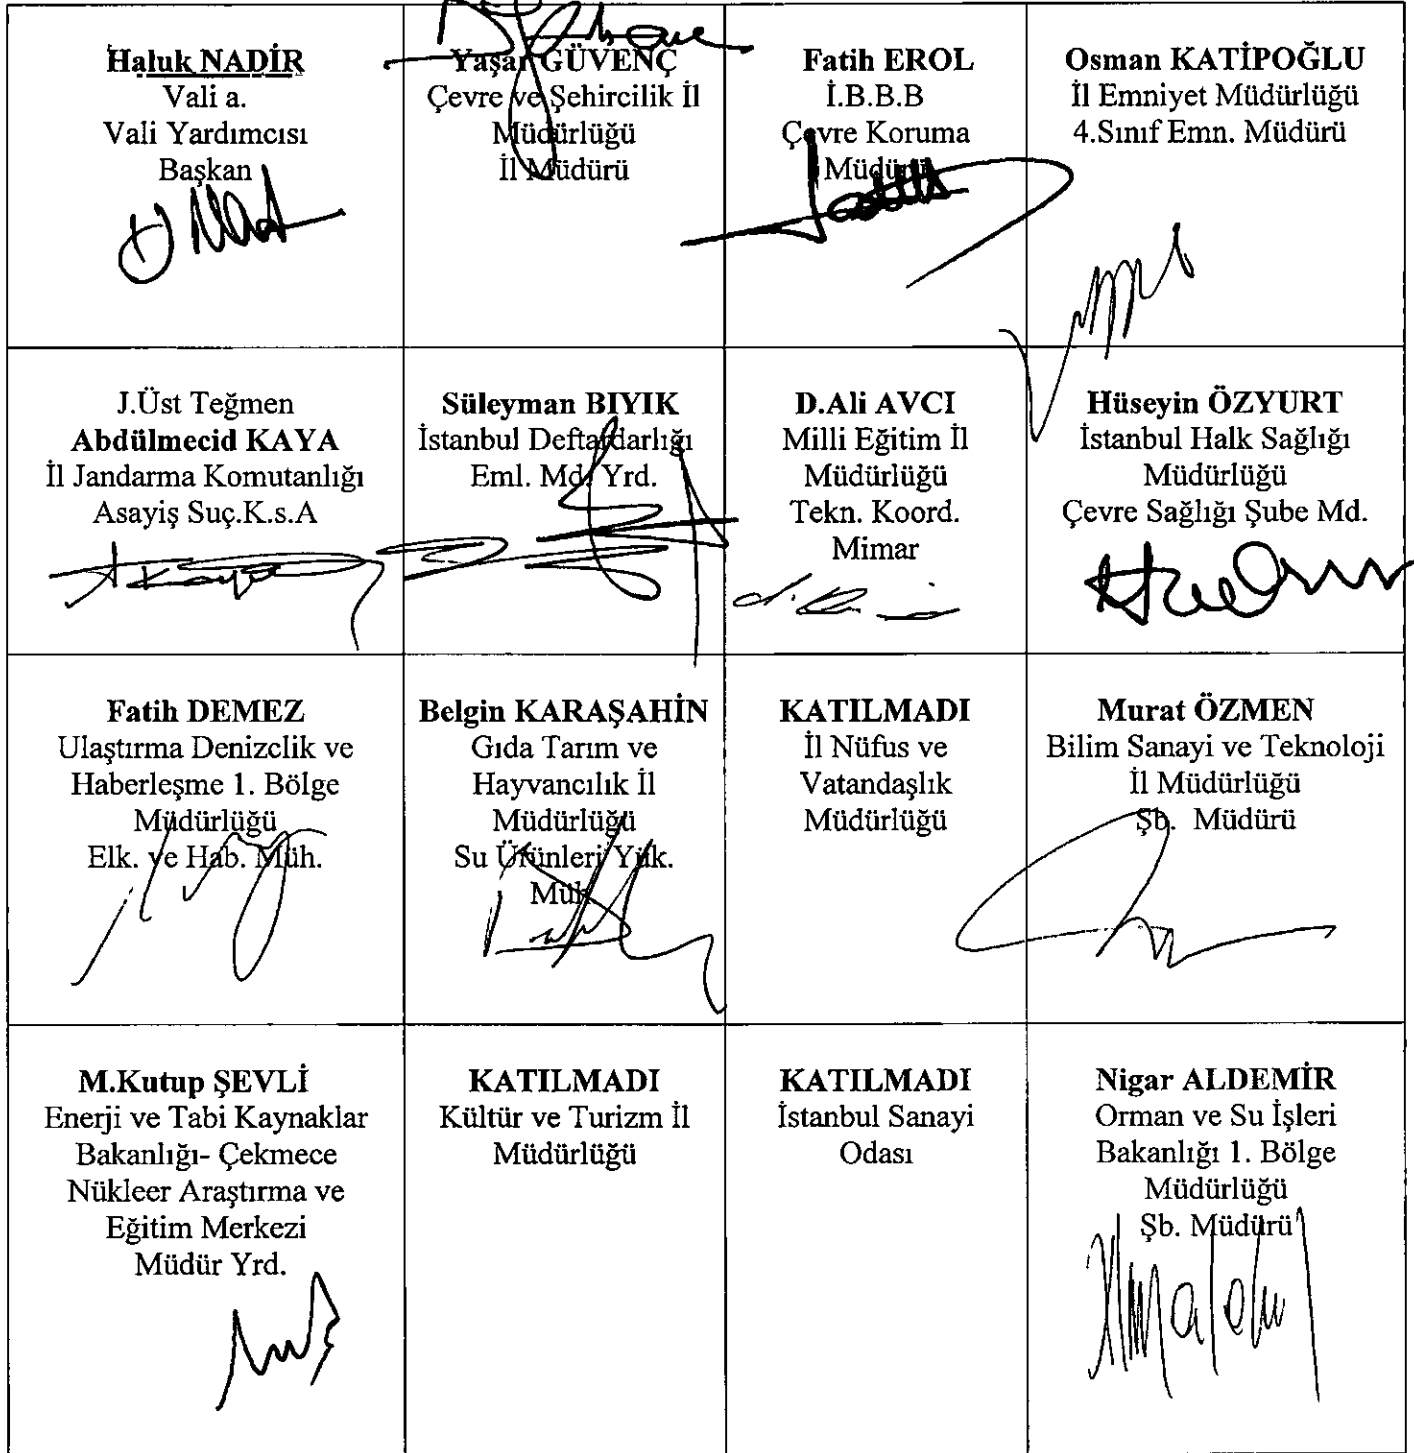 Haluk NADİR
Vali a.
Vali Yardımcısı
Başkan
Yaşar GÜVENÇ
Çevre ve Şehircilik İl
Müdürlüğü
İl Müdürü
Fatih EROL
İ.B.B.B
Çevre Koruma
Müdürü
Osman KATİPOĞLU
İl Emniyet Müdürlüğü
4.Sınıf Emn. Müdürü
J.Üst Teğmen
Abdülmecid KAYA
İl Jandarma Komutanlığı
Asayiş Suç.K.s.A
Süleyman BIYIK
İstanbul Deftardarlığı
Eml. Md. Yrd.
D.Ali AVCI
Milli Eğitim İl
Müdürlüğü
Tekn. Koord.
Mimar
Hüseyin ÖZYURT
İstanbul Halk Sağlığı
Müdürlüğü
Çevre Sağlığı Şube Md.
Fatih DEMEZ
Ulaştırma Denizclik ve
Haberleşme 1. Bölge
Müdürlüğü
Elk. ve Hab. Müh.
Belgin KARAŞAHİN
Gıda Tarım ve
Hayvancılık İl
Müdürlüğü
Su Ürünleri Yük.
Müh.
KATILMADI
İl Nüfus ve
Vatandaşlık
Müdürlüğü
Murat ÖZMEN
Bilim Sanayi ve Teknoloji
İl Müdürlüğü
Şb. Müdürü
M.Kutup ŞEVLİ
Enerji ve Tabi Kaynaklar
Bakanlığı- Çekmece
Nükleer Araştırma ve
Eğitim Merkezi
Müdür Yrd.
KATILMADI
Kültür ve Turizm İl
Müdürlüğü
KATILMADI
İstanbul Sanayi
Odası
Nigar ALDEMİR
Orman ve Su İşleri
Bakanlığı 1. Bölge
Müdürlüğü
Şb. Müdürü